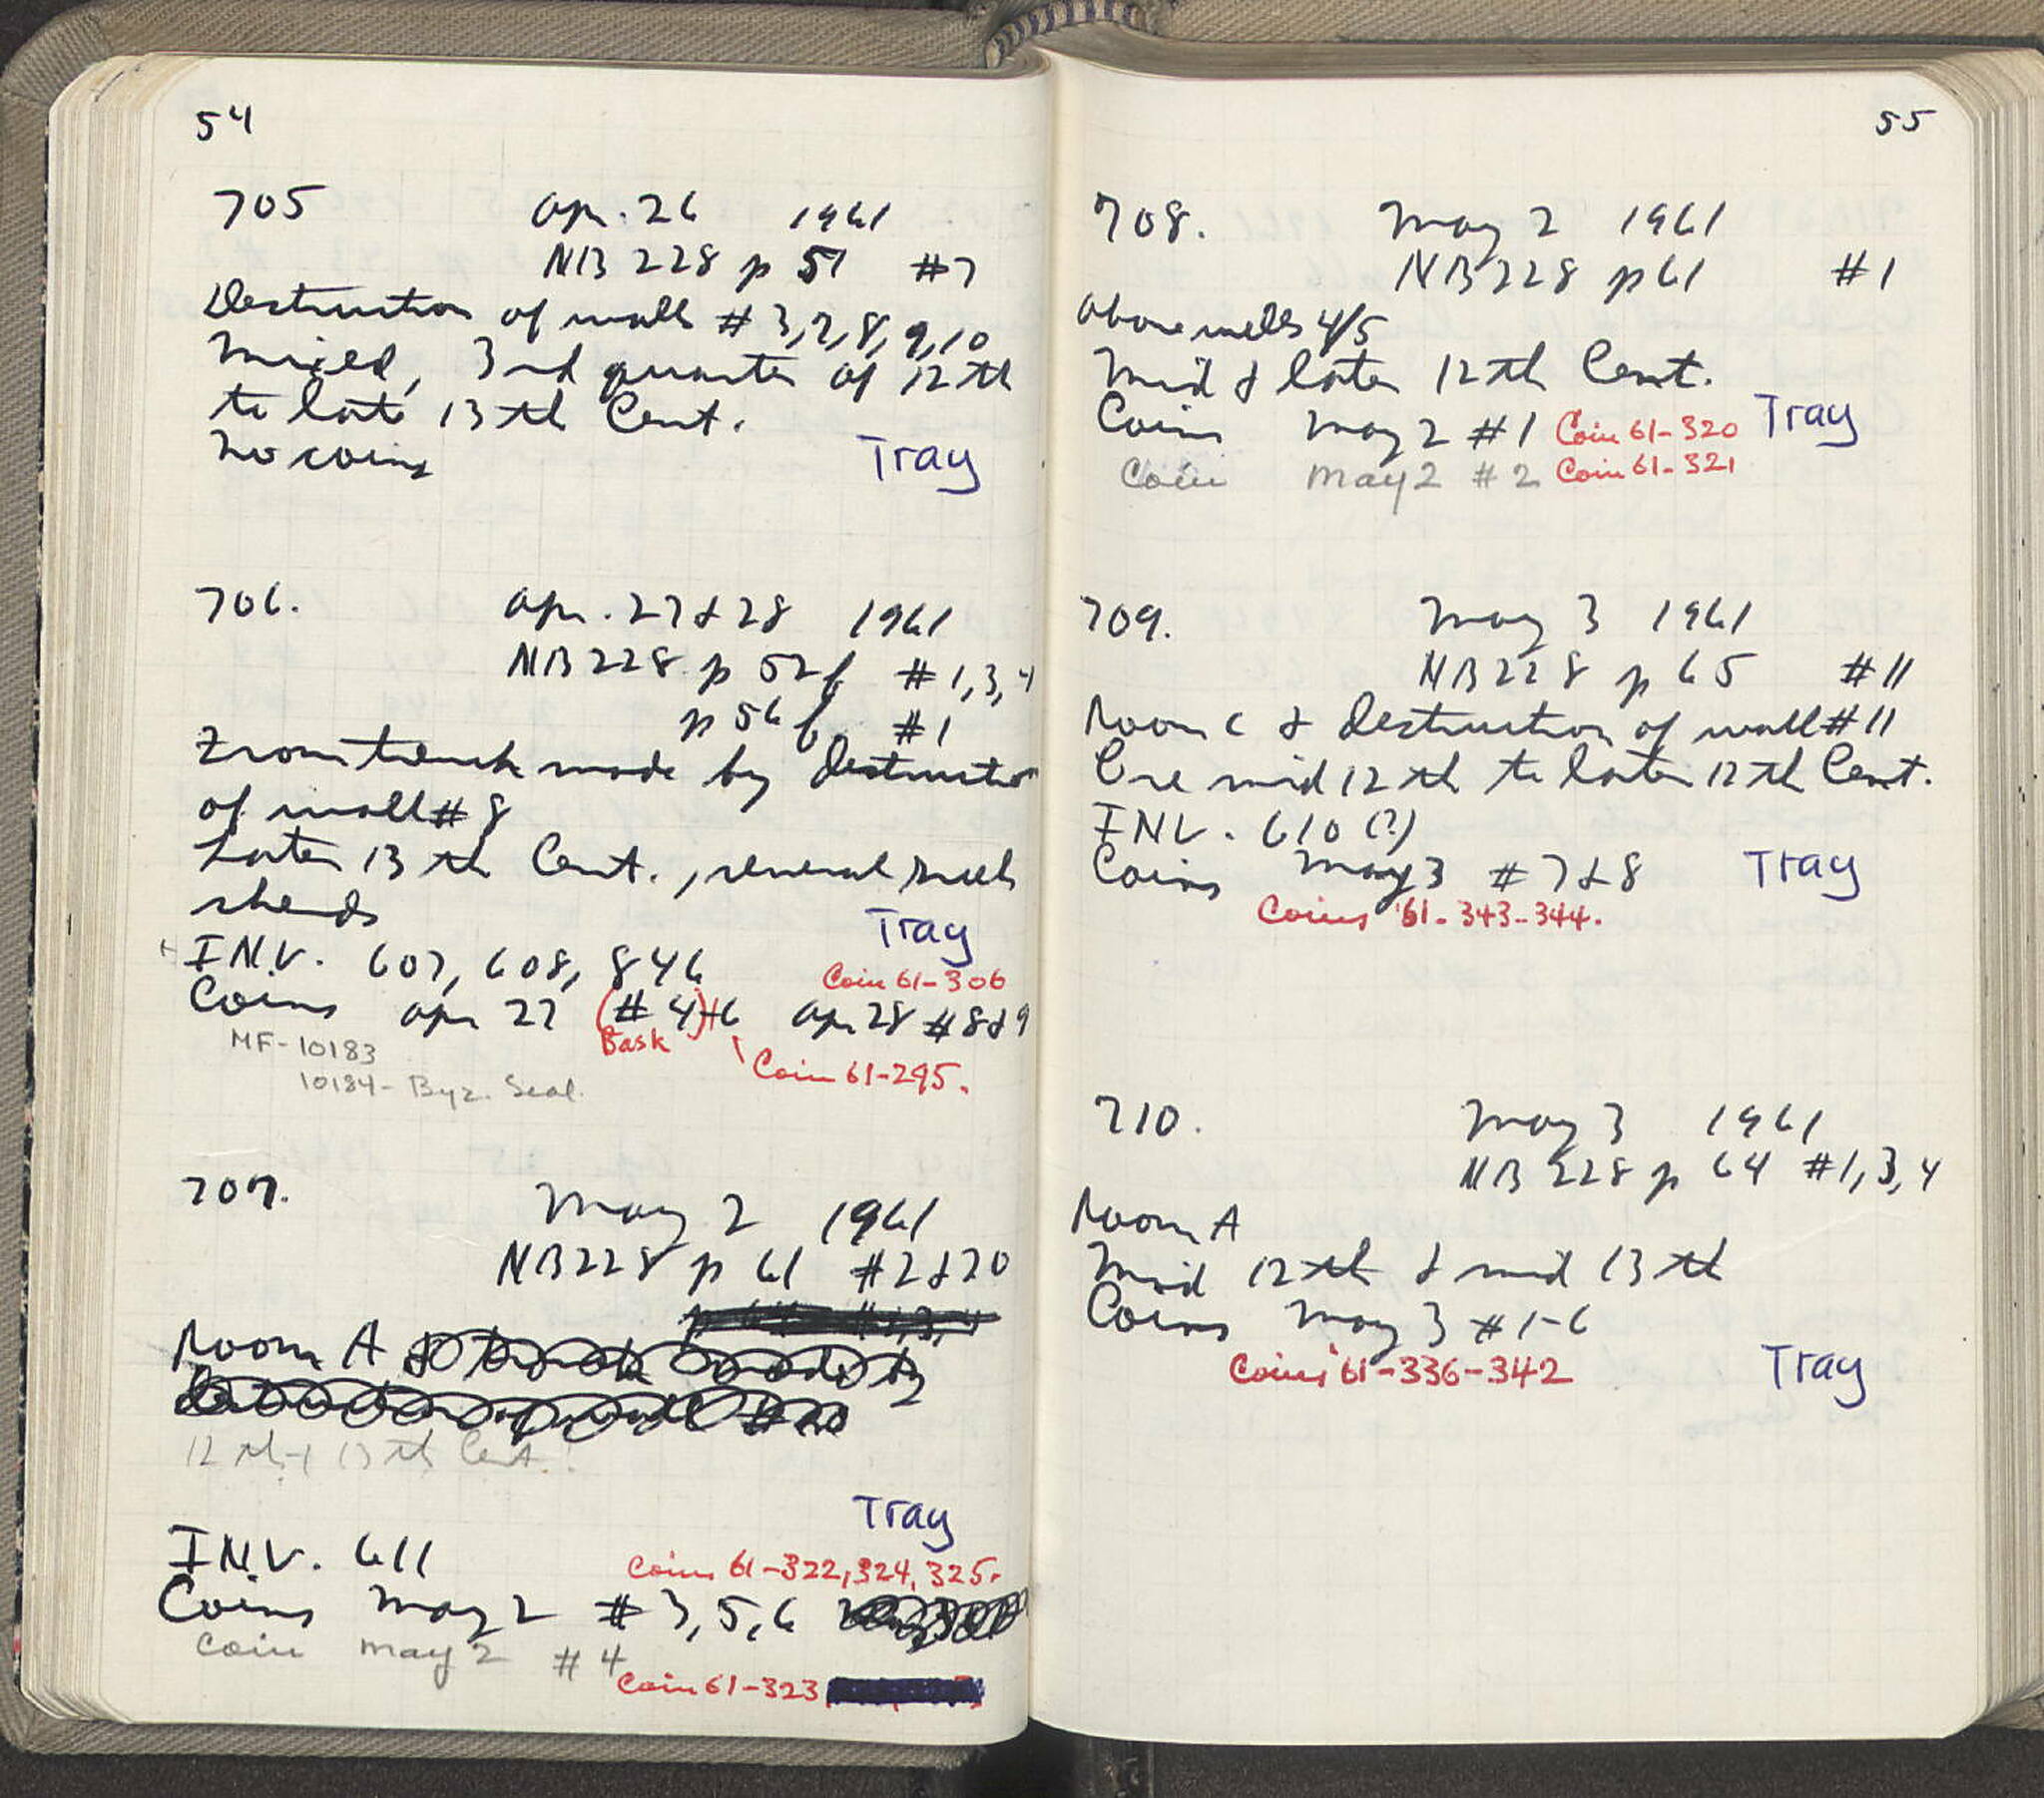 54
705 Apr. 26 1961
NB 228 p 51 #7
Destruction of walls # 3,2,8,9,10
Mixed, 3rd quarter of 12th
to late 13th Cent.
No coins
Tray
706. Apr. 27 & 28 1961
NB 228 p 52 f #1,3,4
p 56 f #1
From trench made by destruction
of wall #8
Later 13th Cent., several
sherds
Tray
INV. 607, 608, 846
Coin 61-306
Coins Apr 27 (#4)+6 Apr 28 #8&9
Bask
MF-10183
Coin 61-295.
10184- Byz. Seal
707. May 2 1961
NB 228 p 61 #2&20
Room A
12th + 13th Cent.
Tray
INV. 611
Coins 61-322, 324, 325.
Coins May 2 #3,5,6
Coin May 2 #4
Coin 61-323
55
708. May 2 1961
NB 228 p 61 #1
Above wells 4/5
Mid & later 12th Cent.
Coins May 2 #1 Coin 61-320 Tray
Coin May 2 #2 Coin 61-321
709. May 3 1961
NB 228 p 65 #11
Room C & destruction of wall #11
Pre mid 12th to later 12th Cent.
INV. 610 (?)
Coins May 3 #7&8 Tray
Coins '61-343-344.
710. May 3 1961
NB 228 p 64 #1,3,4
Room A
Mid 12th & mid 13th
Coins May 3 #1-6
Coins '61-336-342 Tray